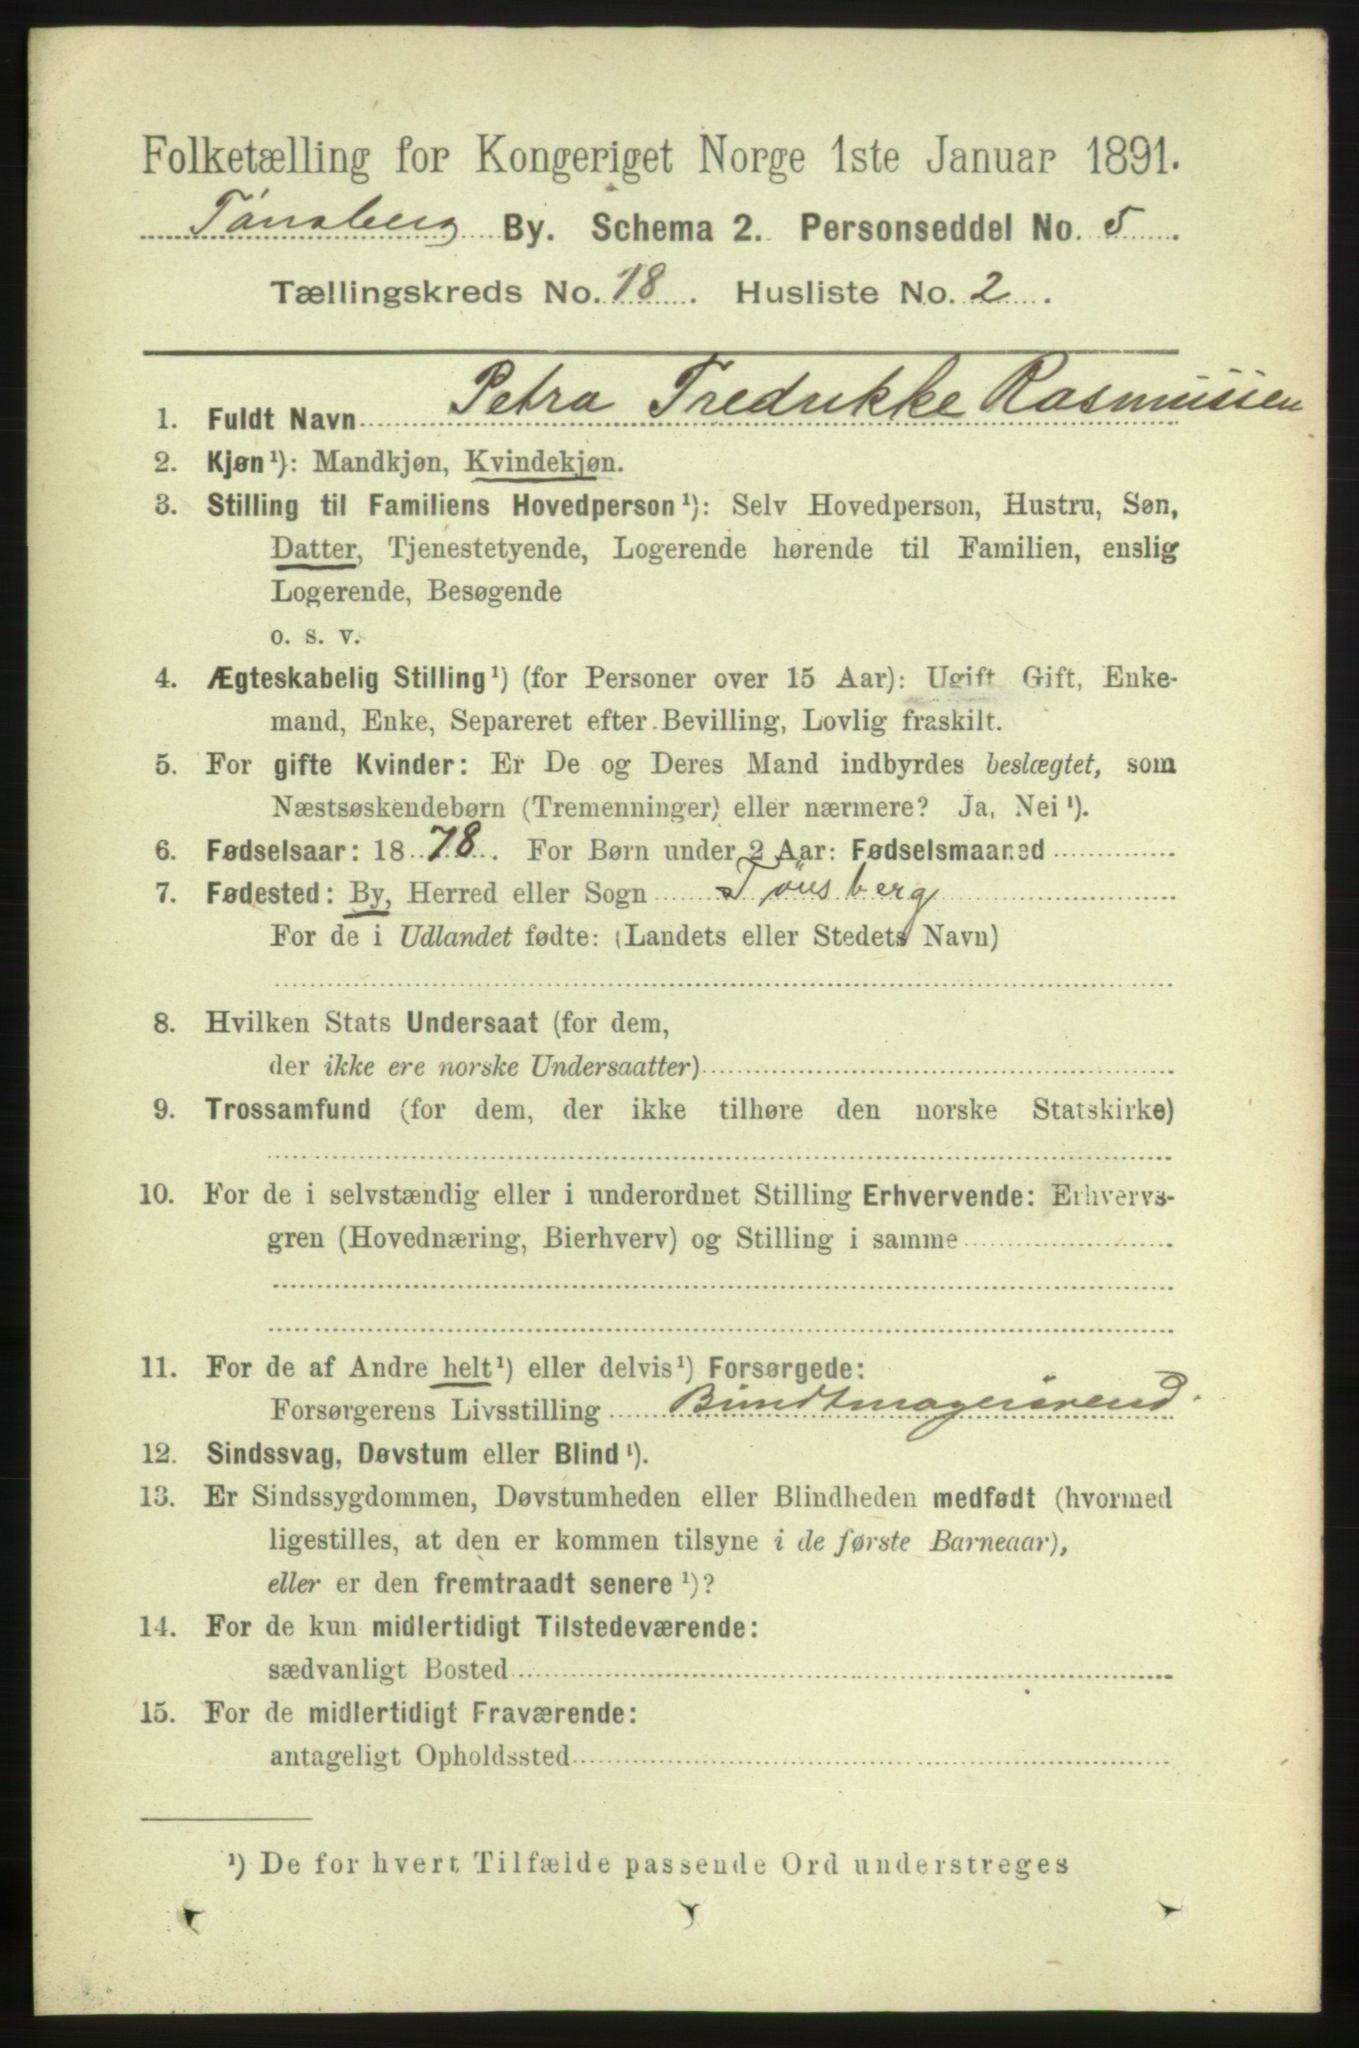 Folketælling for Kongeriget Norge 1ste Januar 1891.
Tønsberg By. Schema 2. Personseddel No. 5
Tællingskreds No. 18. Husliste No. 2.
1. Fuldt Navn Petra Fredrikke Rasmussen
2. Kjøn¹): Mandkjøn, Kvindekjøn.
3. Stilling til Familiens Hovedperson¹): Selv Hovedperson, Hustru, Søn,
Datter, Tjenestetyende, Logerende hørende til Familien, enslig
Logerende, Besøgende
o. s. v.
4. Ægteskabelig Stilling¹) (for Personer over 15 Aar): Ugift Gift, Enke-
mand, Enke, Separeret efter Bevilling, Lovlig fraskilt.
5. For gifte Kvinder: Er De og Deres Mand indbyrdes beslægtet, som
Næstsøskendebørn (Tremenninger) eller nærmere? Ja, Nei¹).
6. Fødselsaar: 1878. For Børn under 2 Aar: Fødselsmaaned
7. Fødested: By, Herred eller Sogn Tönsberg
For de i Udlandet fødte: (Landets eller Stedets Navn)
8. Hvilken Stats Undersaat (for dem,
der ikke ere norske Undersaatter)
9. Trossamfund (for dem, der ikke tilhøre den norske Statskirke)
10. For de i selvstændig eller i underordnet Stilling Erhvervende: Erhvervs-
gren (Hovednæring, Bierhverv) og Stilling i samme
11. For de af Andre helt¹) eller delvis¹) Forsørgede:
Forsørgerens Livsstilling Bundtmagersvend
12. Sindssvag, Døvstum eller Blind¹).
13. Er Sindssygdommen, Døvstumheden eller Blindheden medfødt (hvormed
ligestilles, at den er kommen tilsyne i de første Barneaar),
eller er den fremtraadt senere¹)?
14. For de kun midlertidigt Tilstedeværende:
sædvanligt Bosted
15. For de midlertidigt Fraværende:
antageligt Opholdssted
¹) De for hvert Tilfælde passende Ord understreges